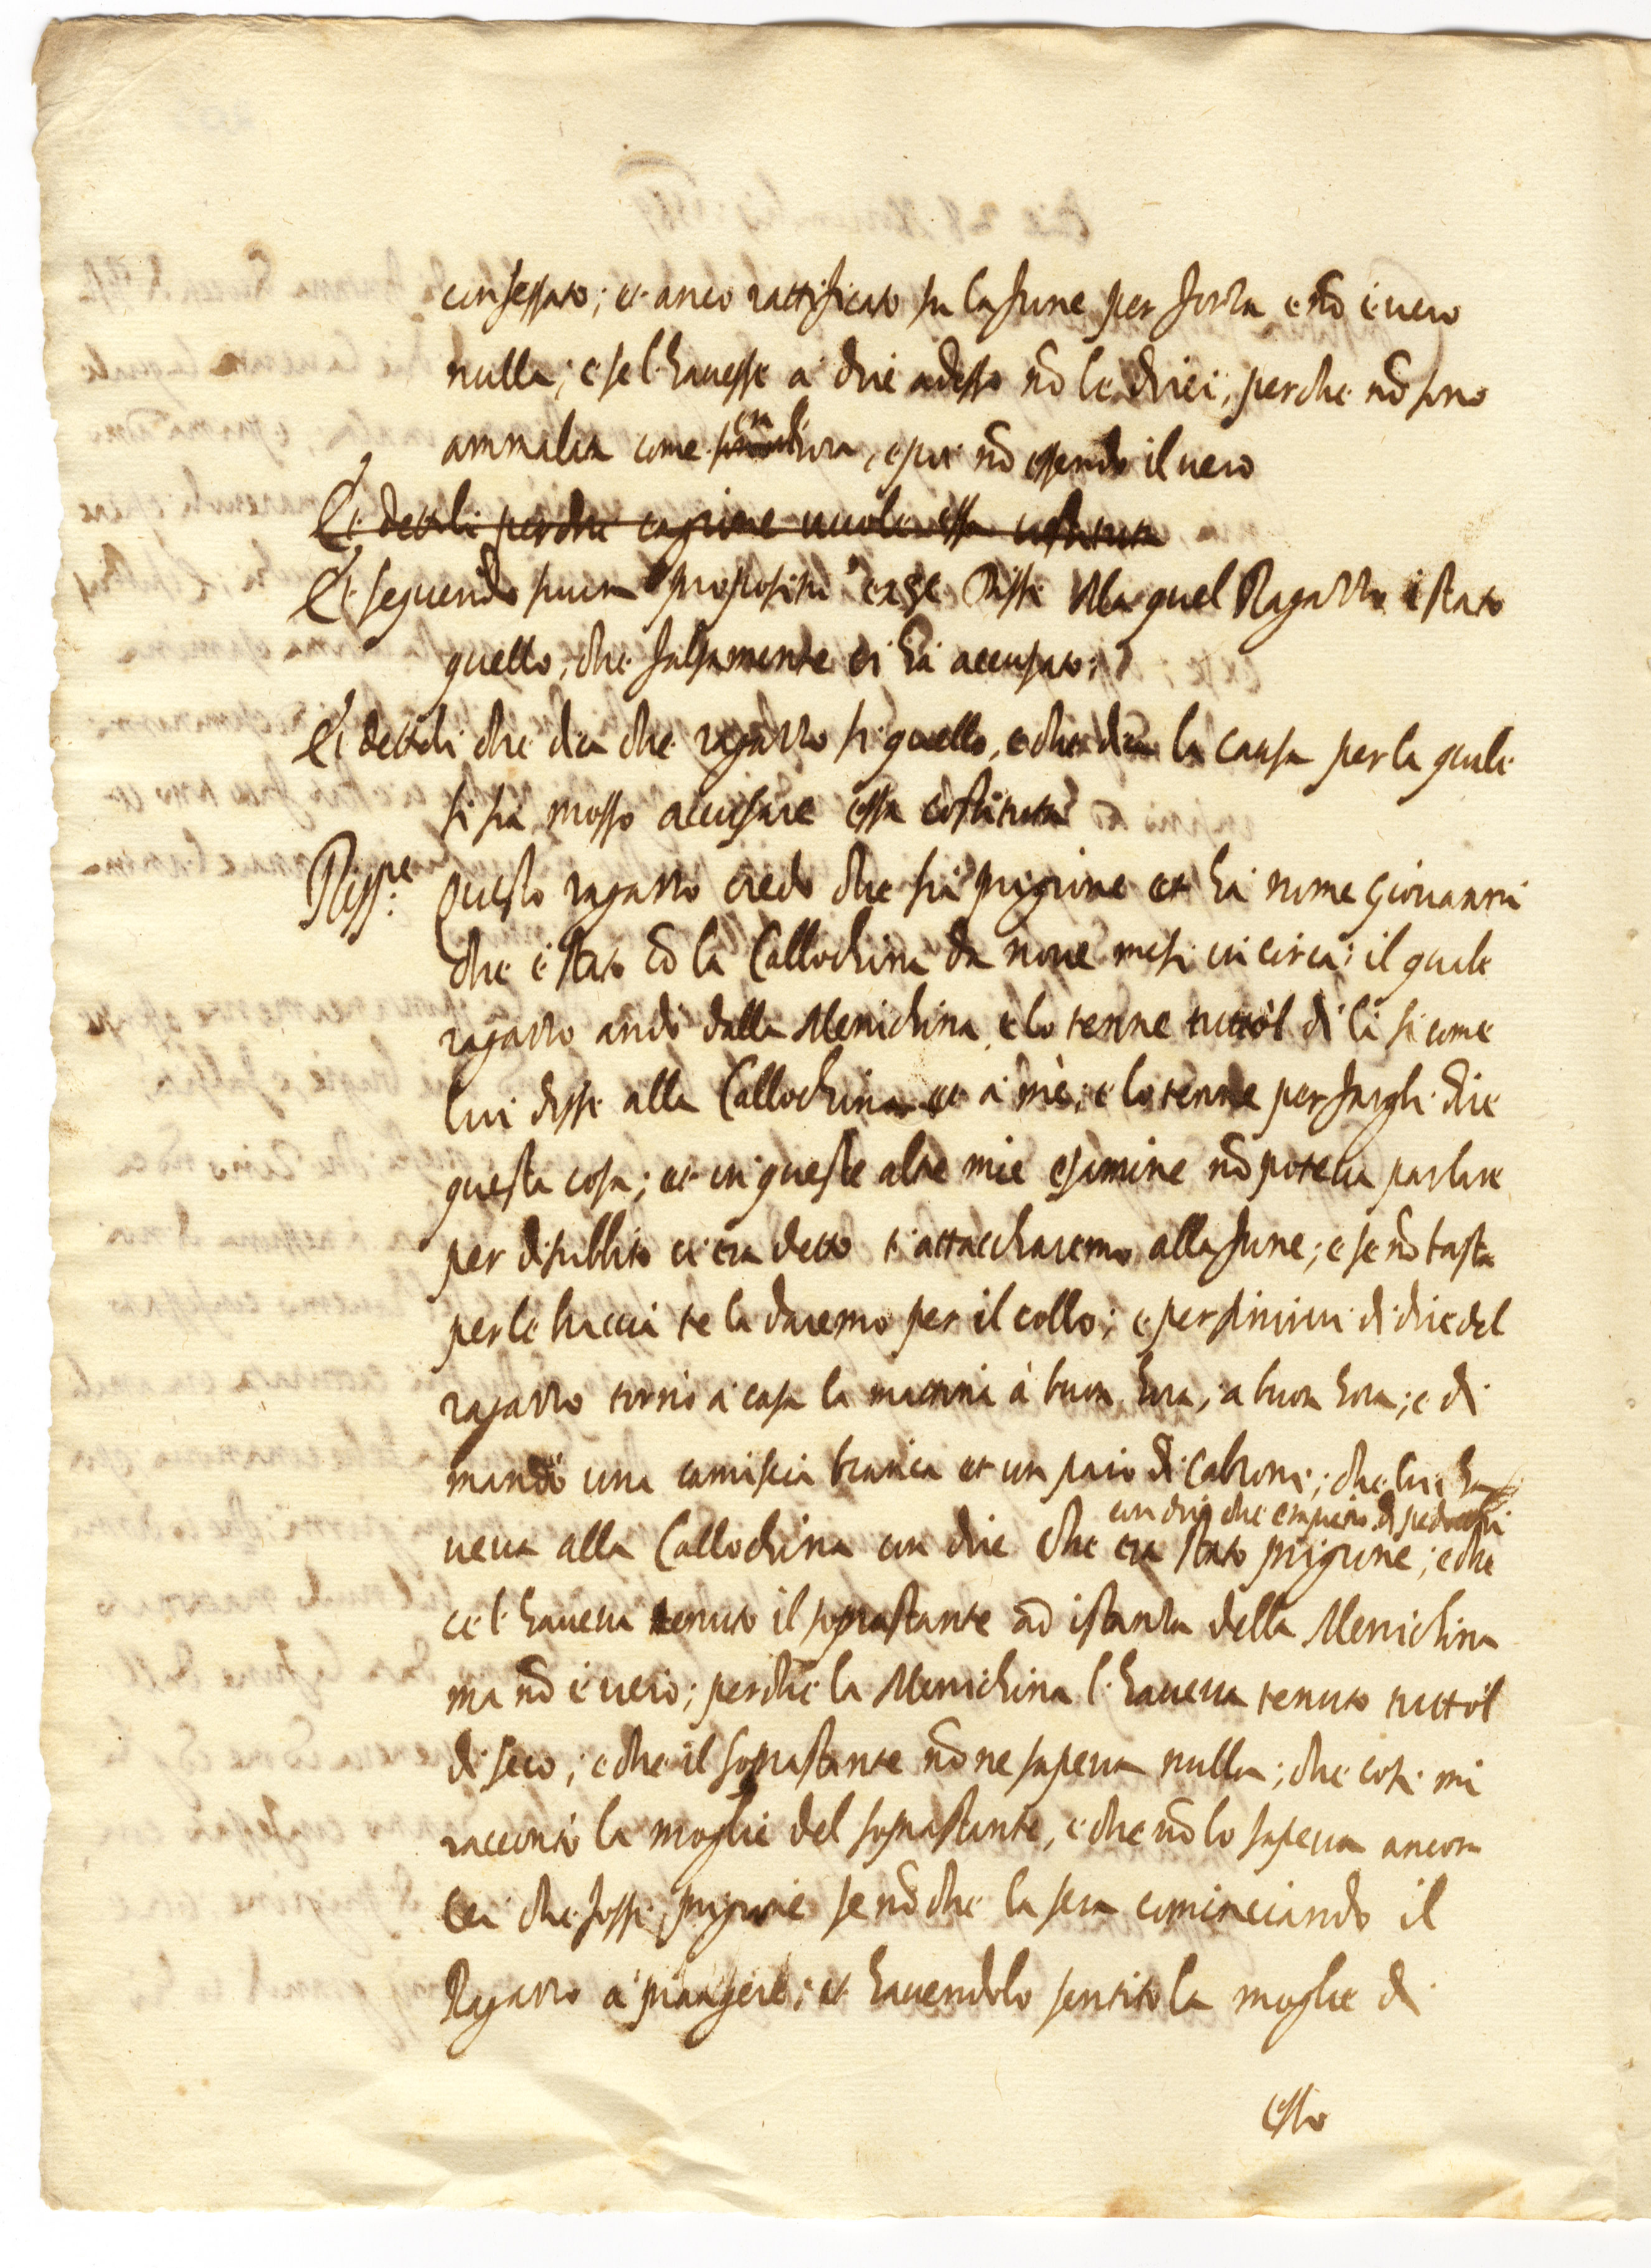 confessato; et anco rattificato su la fune per forza e nõ è vero
nulla; e se l'havesse a dire adesso nõ le direi, perche nõ sono
ammalata come era all'hora, e poi nõ essendo il vero
Et dettoli perche cagione vuole essa costituta
Et seguendo suum propositum ex se Disse Ma quel Ragazzo è stato
quello, che falsamente ci hà accusato;
Et dettoli che dica che ragazzo sia quello, e che dica la causa per la quale
si sia mosso accusare essa costituta
Risp.e Questo ragazzo credo che sia prigione et hà nome Giovanni
che è stato cõ la Callochina da nove mesi in circa; il quale
ragazzo andò dalla Menichina, e lo tenne tutto'l dì li si come
lui disse alla Callochina et à mè, e lo tenne per fargli dire
questa cosa; et in queste altre mie esamine nõ poteva parlare
per di subbito ci era detto ti attaccharemo alla fune; e se nõ basta
per le braccia te la daremo per il collo; e per finirvi di dire del
ragazzo tornò a casa la mattina à buon hora, a buon hora; e di
mandò una camiscia bianca et un paio di calzoni; che lui ha
con dire che era pieno di pedocchi
veva alla Callochina con dire che era stato prigione; e che
ce l'haveva tenuto il soprastante ad istanza della Menichina
ma nõ è vero; perche la Menichina l'haveva tenuto tutto'l
dì seco; e che il soprastante nõ ne sapeva nulla; che cosi mi
raccontò la moglie del soprastante, e che nõ lo sapeva ancora
lei che fosse prigione se nõ che la sera cominciando il
Ragazzo a piangere; et havendolo sentito la moglie di
esso